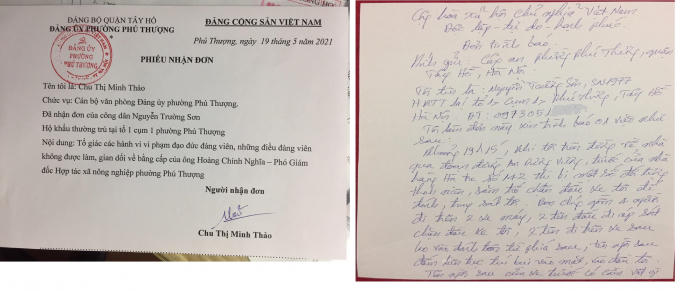 ĐẢNG BỘ QUẬN TÂY HỒ
ĐẢNG ỦY PHƯỜNG PHÚ THƯỢNG
ĐẢNG CỘNG SẢN VIỆT NAM
Phú Thượng, ngày 19 tháng 5 năm 2021
ĐẢNG ỦY
PHƯỜNG
PHÚ THƯỢNG
PHIẾU NHẬN ĐƠN
Tên tôi là: Chu Thị Minh Thảo
Chức vụ: Cán bộ văn phòng Đảng ủy phường Phú Thượng.
Đã nhận đơn của công dân Nguyễn Trường Sơn
Hộ khẩu thường trú tại tổ 1 cụm 1 phường Phú Thượng
Nội dung: Tố giác các hành vi vi phạm đạo đức đảng viên, những điều đảng viên
không được làm, gian dối về bằng cấp của ông Hoàng Chinh Nghĩa – Phó Giám
đốc Hợp tác xã nông nghiệp phường Phú Thượng
Người nhận đơn
Chu Thị Minh Thảo
Cộng hòa xã hội chủ nghĩa Việt Nam
Độc lập - tự do - hạnh phúc
Đơn trình báo
Kính gửi: Công an phường Phú Thượng, quận
Tây Hồ, Hà Nội.
Tôi tên là: Nguyễn Trường Sơn, SN 1977
HKTT tại tổ 1 cụm 1, Phú Thượng, Tây Hồ
Hà Nội. ĐT: 0973051
Tôi làm đơn này xin trình báo 01 việc như
sau:
19h15', khi tôi trên đường về nhà
qua đoạn đường An Dương Vương, trước cửa nhà
hàng số 142 thì bị một số đối tượng
chặn đầu xe tôi để
đánh, tôi. 4 người
đi trên 2 xe máy, 2 tên
chặn đầu xe tôi, 2 tên đi trên xe sau
lao vào đánh tôi từ phía sau, tên ngồi sau
đấm liên tục vào mặt, vào đầu tôi.
Tên ngồi sau của xe trước có cầm vật gì